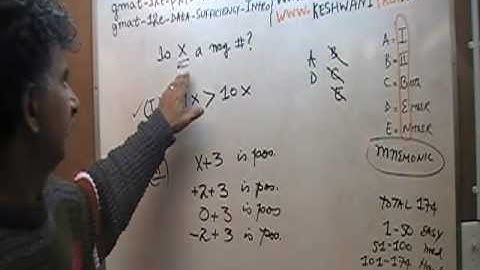 gmat-12e-DATA-SUFFICIENCY-INTRO/
WWW.KESHWANI
Is X a neg #?
(I) 9x > 10x
(II) x+3 is pos.
+2+3 is pos.
0+3 is pos
-2+3 is pos.
A B
D C
E
A = I
B = II
C = BOTH
D = EITHER
E = NEITHER
MNEMONIC
TOTAL 174
1-50 EASY
51-100 med
101-174